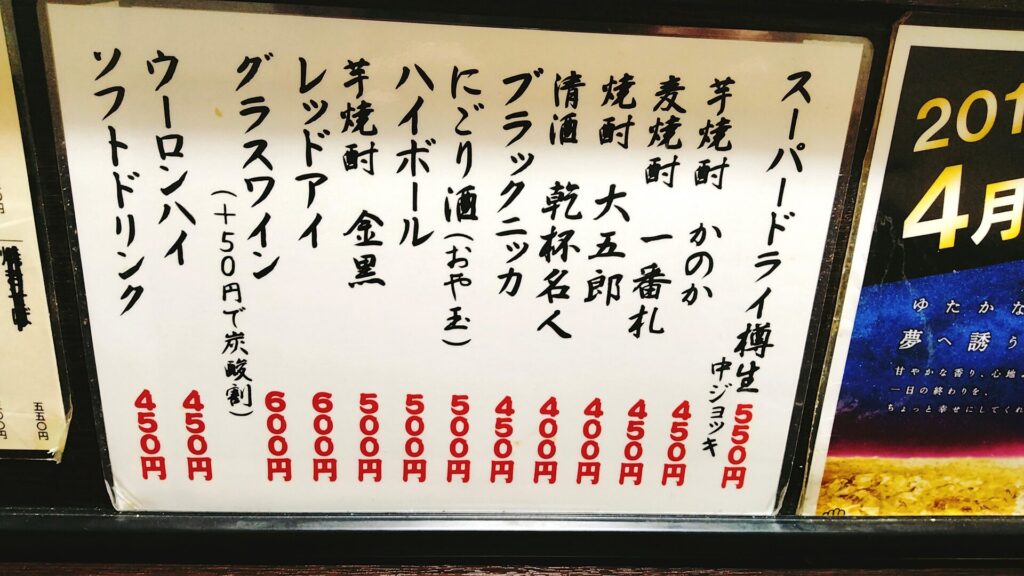 スーパードライ樽生 中ジョッキ 550円
芋焼酎 かのか 450円
麦焼酎 一番札 450円
焼酎 大五郎 400円
清酒 乾杯名人 400円
ブラックニッカ 450円
にごり酒(おや玉) 500円
ハイボール 500円
芋焼酎 金黒 500円
レッドアイ 600円
グラスワイン 600円
(+50円で炭酸割)
ウーロンハイ 450円
ソフトドリンク 450円
201
4月
ゆたかな
夢へ誘う
甘やかな香り、心地
一日の終わりを、
ちょっと幸せにしてくれ
五五0円